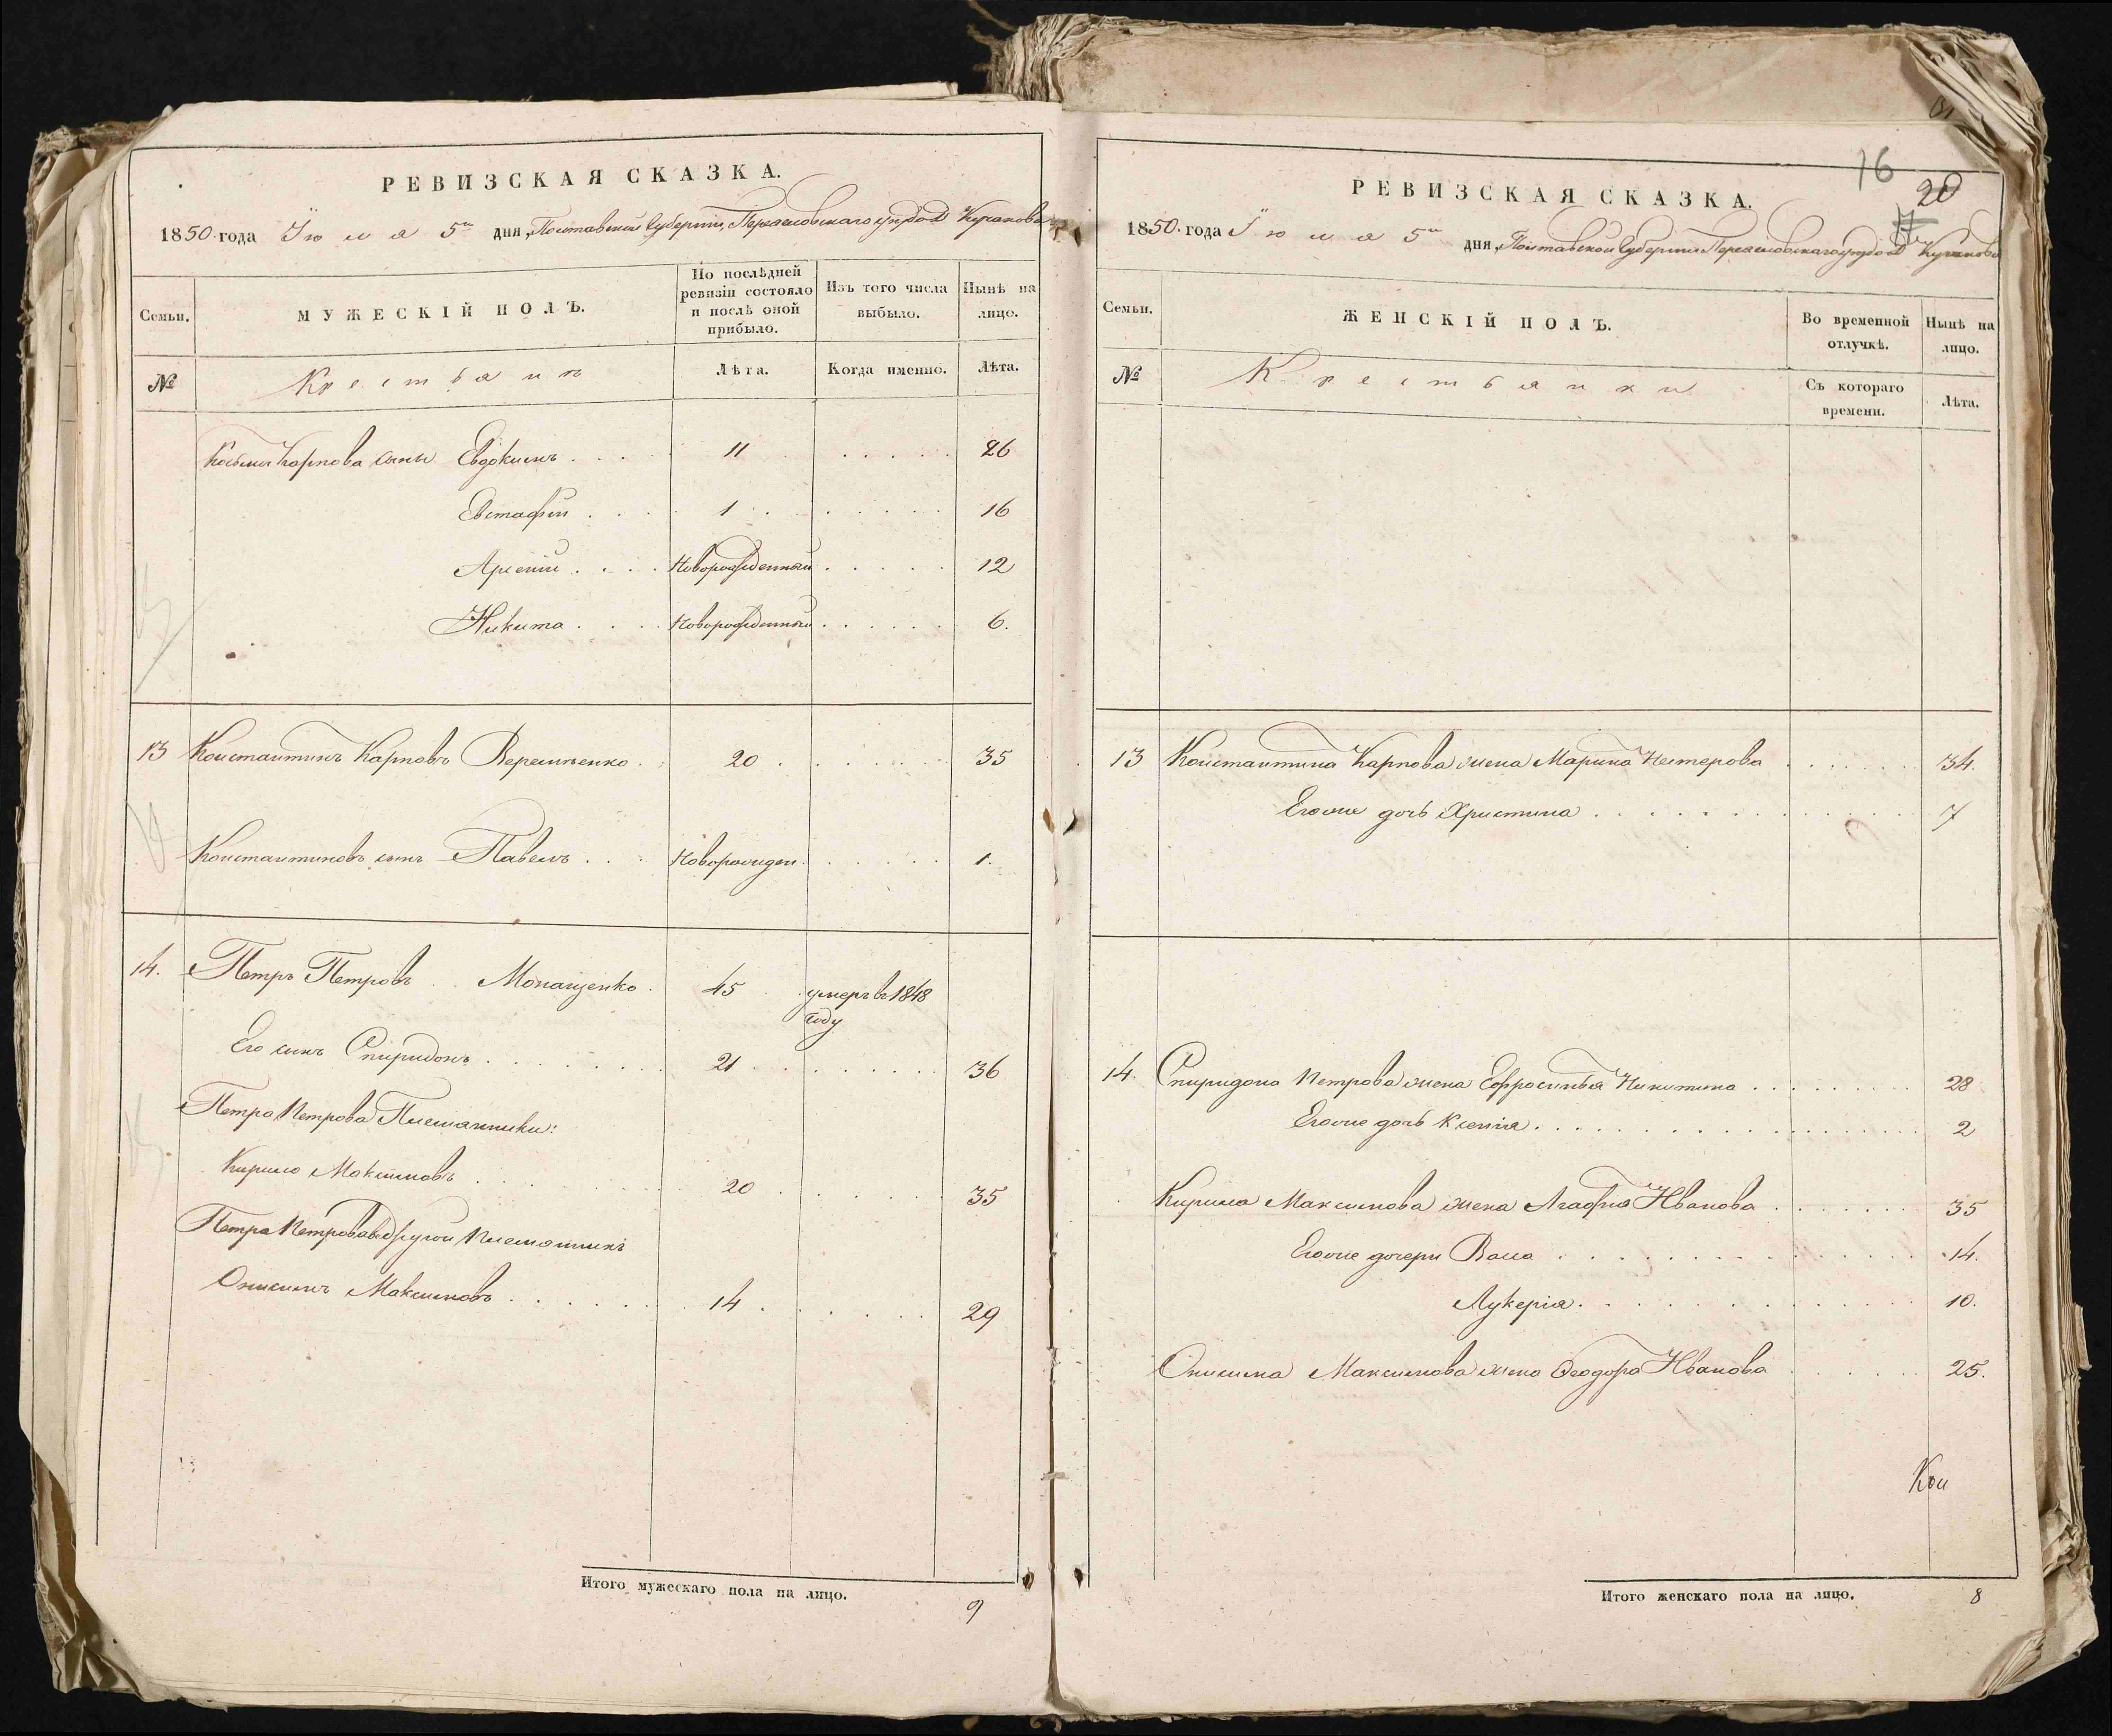 РЕВИЗСКАЯ СКАЗКА.
1850 года Іюля 5го дня, Полтавской Губерніи, Переясловскаго уѣзда
Семьи.
МУЖЕСКІЙ ПОЛЪ.
По послѣдней ревизіи состояло и послѣ оной прибыло.
Изъ того числа выбыло.
Нынѣ на лицо.
№
Крестьянъ
Лѣта.
Когда именно.
Лѣта.
Космы Карпова сыны Евдокимъ 11 26
Евстафій 1 16
Арсеній Новорожденный 12
Никита Новорожденный 6.
13 Константинъ Карповъ Веремѣенко 20 35
Константиновъ сынъ Павелъ Новорожден. 1.
14. Петръ Петровъ Монащенко 45 умеръ в 1848 году
Его сынъ Спиридонъ 21 36
Петра Петрова Племянники:
Кирило Максимовъ 20 35
Петра Петрова другой Племянникъ
Онисимъ Максимовъ 14 29
Итого мужескаго пола на лицо. 9
16
20
РЕВИЗСКАЯ СКАЗКА.
1850 года Іюля 5го дня, Полтавской Губерніи Переясловскаго уѣзда
Семьи.
ЖЕНСКІЙ ПОЛЪ.
Во временной отлучкѣ.
Нынѣ на лицо.
№
Крестьянки
Съ котораго времени.
Лѣта.
13 Константина Карпова жена Марина Нестерова 34.
Егоже дочь Христина 7
14. Спиридона Петрова жена Ефросинья Никитина 28
Егоже дочь Ксенія 2
Кирила Максимова жена Агафія Иванова 35
Егоже дочери Васса 14.
Лукерія 10.
Онисима Максимова жена Феодора Иванова 25.
Кон
Итого женскаго пола на лицо. 8